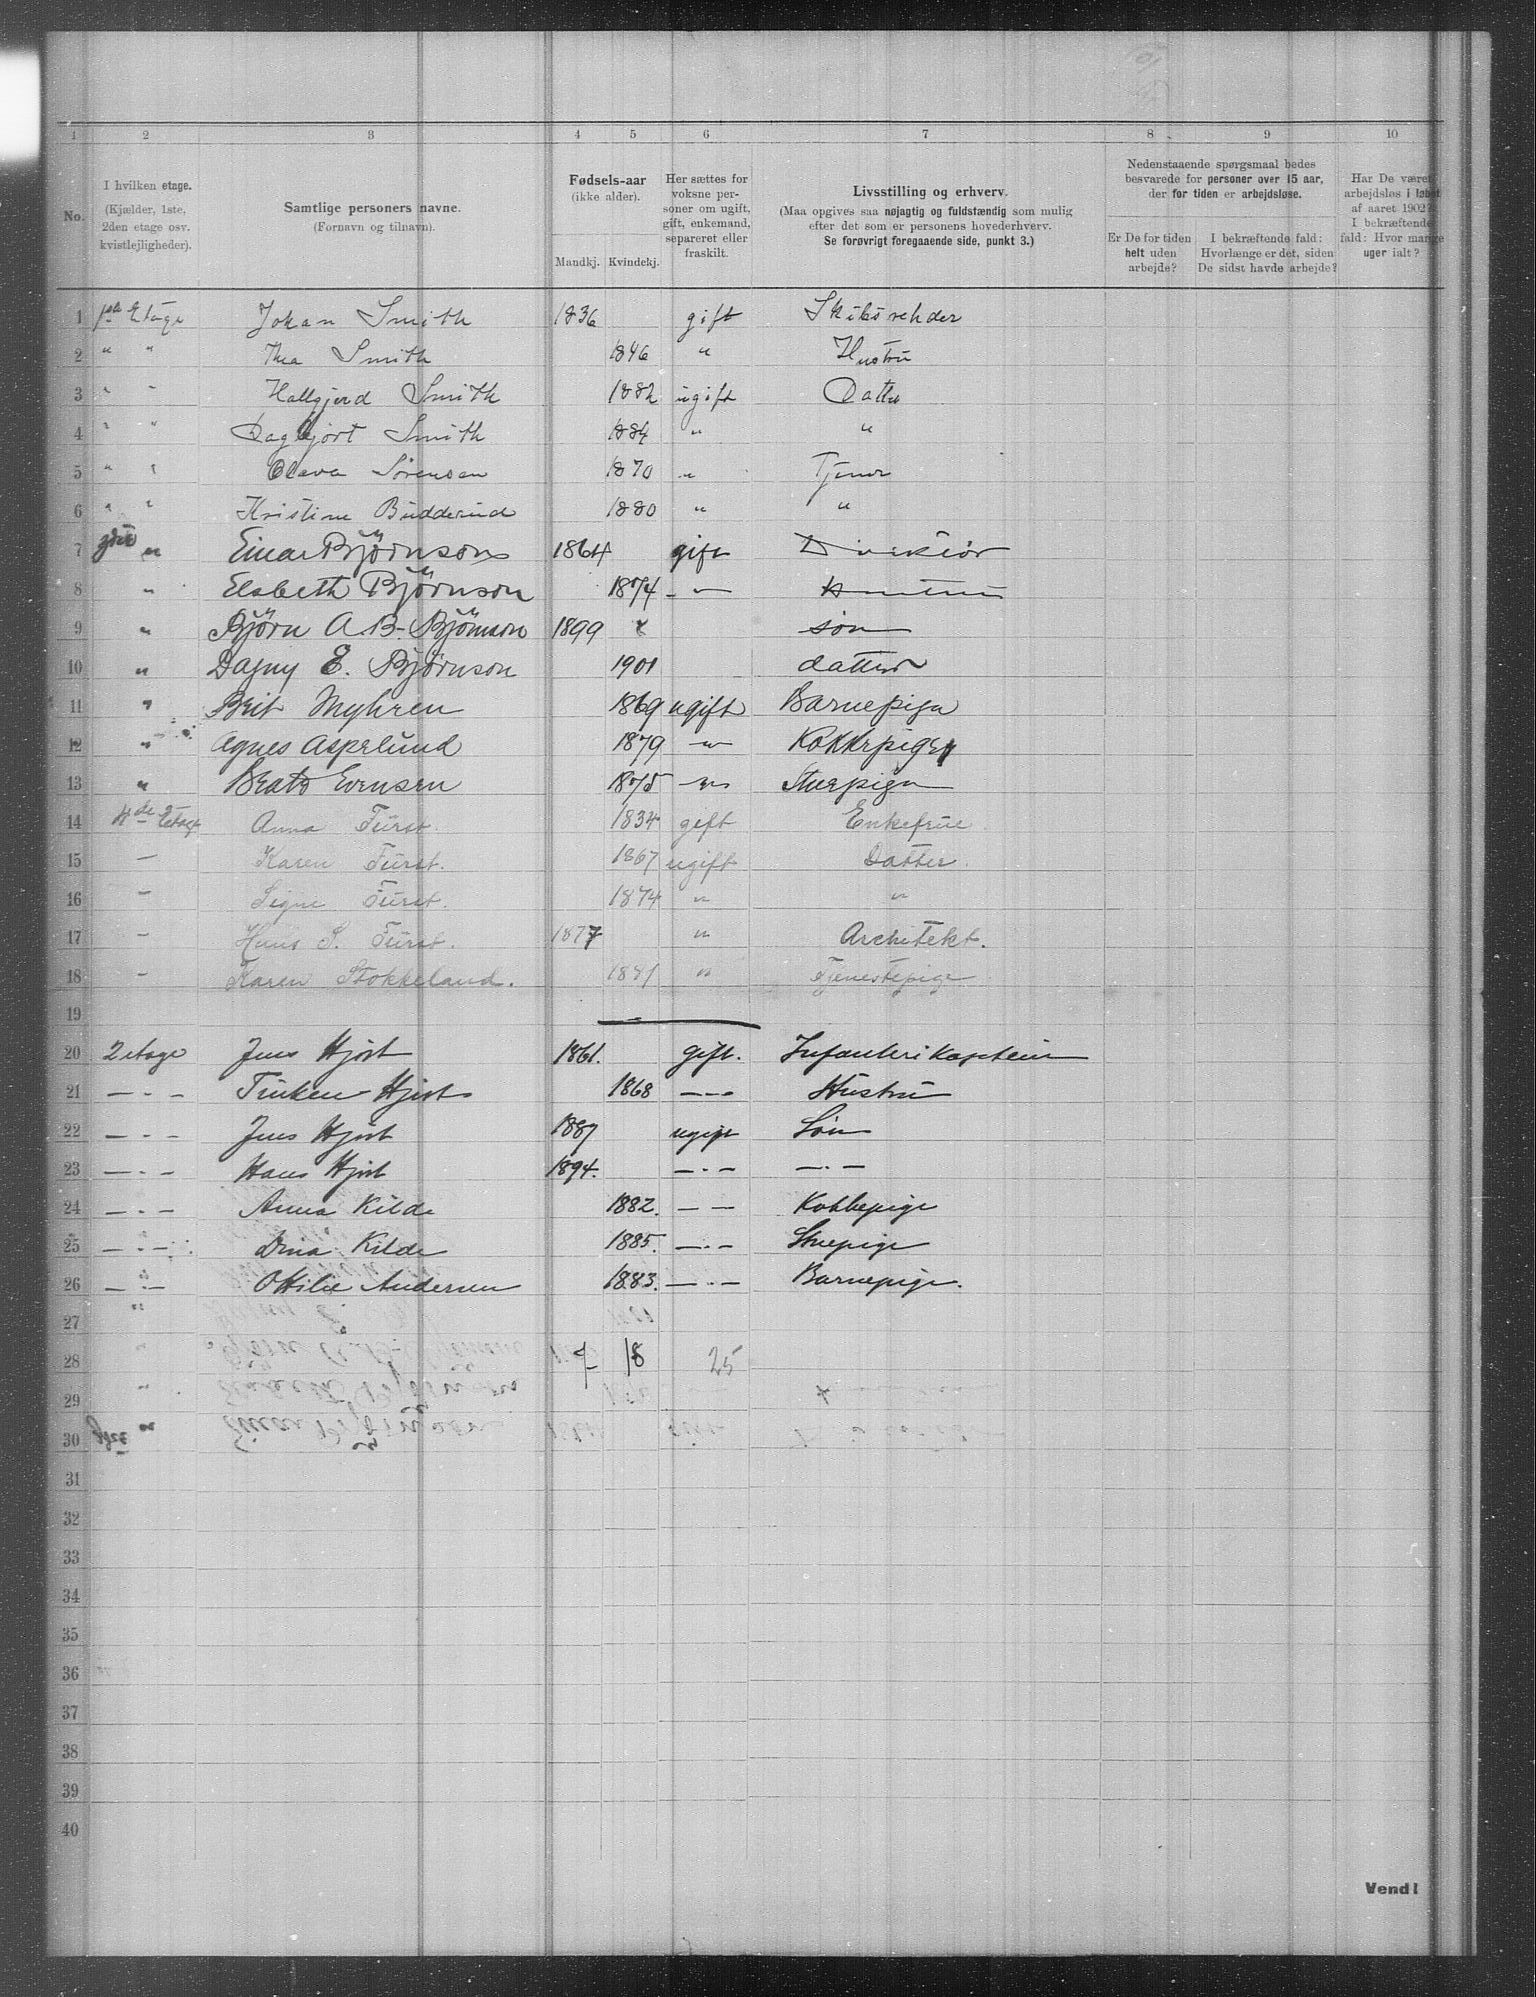 1 2 3 4 5 6 7 8 9 10
No.
I hvilken etage.
(Kjælder, 1ste, 2den etage osv. kvistlejligheder).
Samtlige personers navne.
(Fornavn og tilnavn).
Fødsels-aar
(ikke alder).
Mandkj. Kvindekj.
Her sættes for voksne personer om ugift, gift, enkemand, separeret eller fraskilt.
Livsstilling og erhverv.
(Maa opgives saa nøjagtig og fuldstændig som mulig
efter det som er personens hovederhverv.
Se forøvrigt foregaaende side, punkt 3.)
Nedenstaaende spørgsmaal bedes
besvarede for personer over 15 aar,
der for tiden er arbejdsløse.
Er De for tiden helt uden arbejde?
I bekræftende fald: Hvorlænge er det, siden De sidst havde arbejde?
Har De været arbejdsløs i løbet af aaret 1902? I bekræftende fald: Hvor mange uger ialt?
1 1ste Etage Johan Smith 1836 gift Skibsrehder
2 " " Thea Smith 1846 " Hustru
3 " " Hallgjerd Smith 1882 ugift Datter
4 " " Dagbjørt Smith 1884 " "
5 " " Olava Sørensen 1870 " Tjener
6 " " Kristine Budderud 1880 " "
7 3die " Einar Bjørnson 1864 gift Direktør
8 " Elsbeth Bjørnson 1874 " Hustru
9 " Bjørn A. B. Bjørnson 1899 søn
10 " Dagny E. Bjørnson 1901 datter
11 " Brit Myhren 1869 ugift Barnepige
12 " Agnes Aspelund 1879 " Kokkepige
13 " Beate Evensen 1875 " Stuepige
14 4de Etage Anna Fürst. 1834 gift Enkefrue
15 — Karen Fürst. 1867 ugift Datter.
16 — Signe Fürst. 1874 " "
17 — Hans S. Fürst. 1877 " Architekt.
18 — Karen Stokkeland. 1881 " Tjenestepige
19
20 2 etage Jens Hjort 1861. gift. Infanterikaptein
21 — . — Tinken Hjort 1868 — . — Hustru
22 — . — Jens Hjort 1887 ugift Søn
23 — . — Hans Hjort 1894. — . — — . —
24 — . — Anna Kilde 1882. — — Kokkepige
25 — . — Dina Kilde 1885. — . — Stuepige
26 — . — Ottilie Andersen 1883. — . — Barnepige.
27
28 7 18 25
29
30
31
32
33
34
35
36
37
38
39
40
Vend!